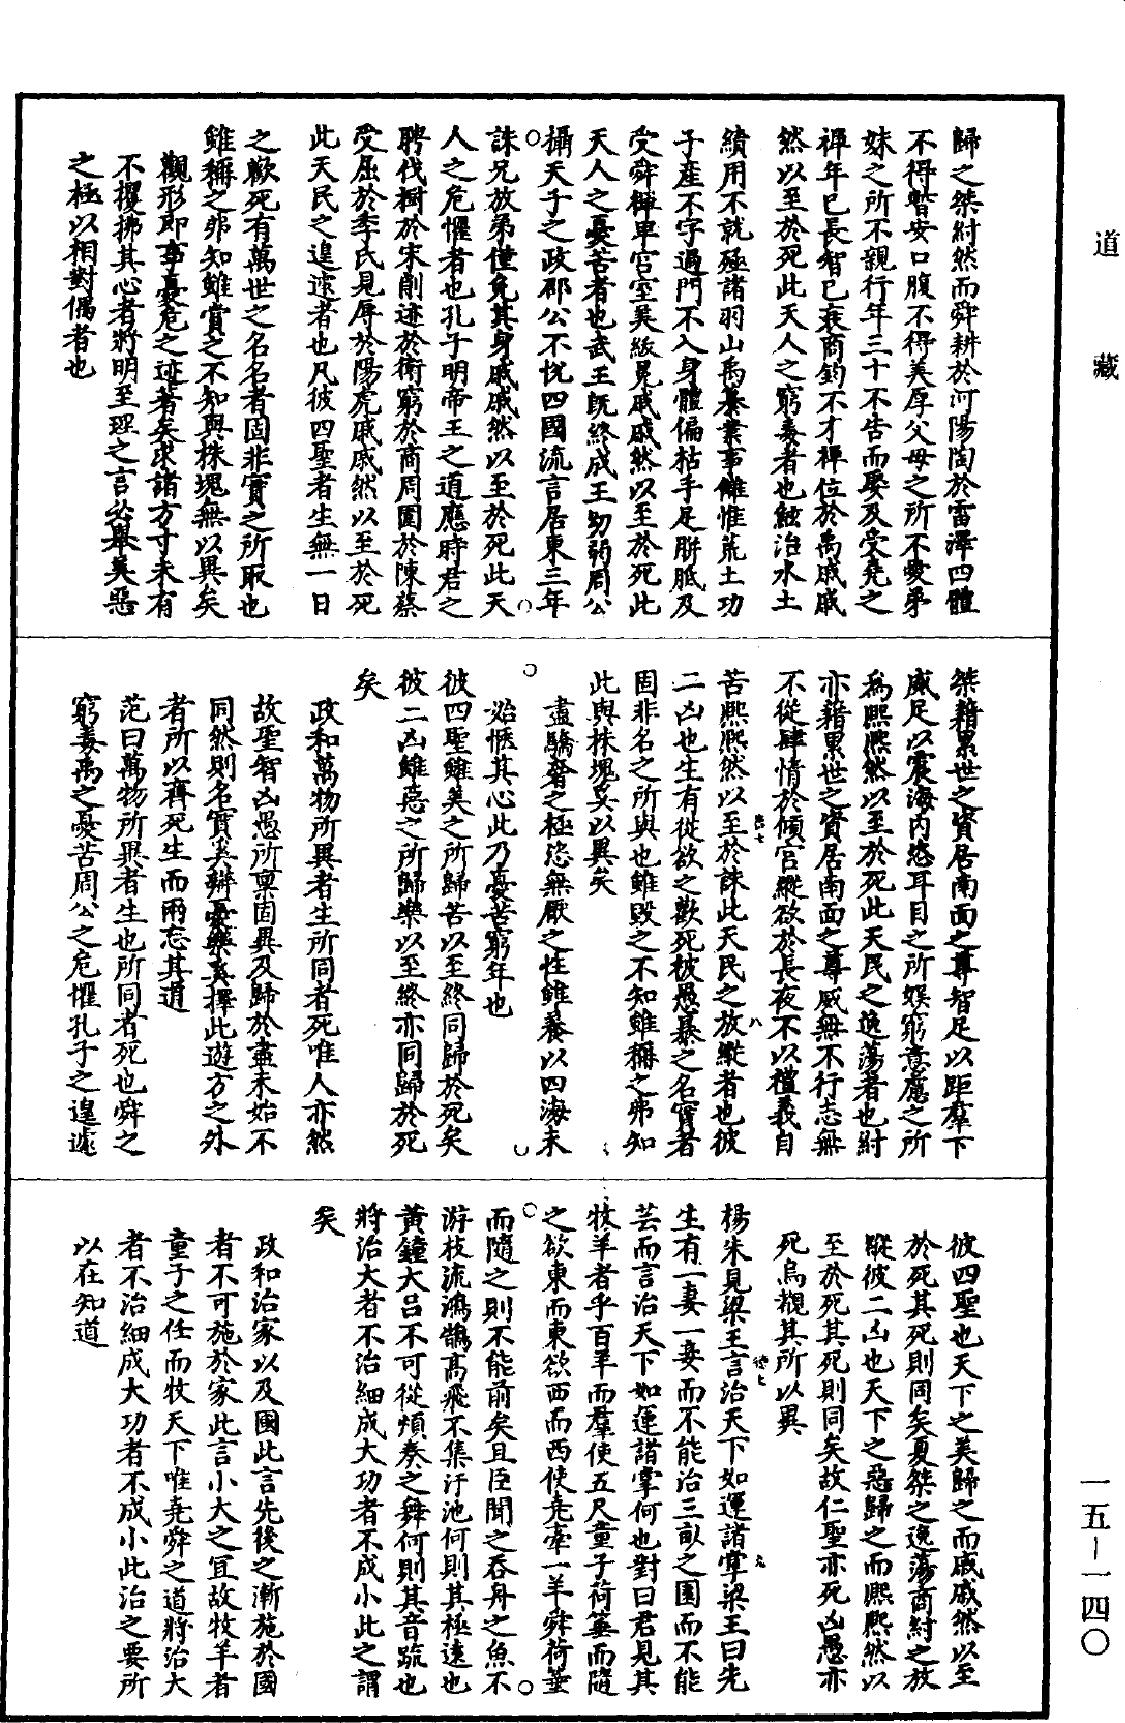 道藏
歸之桀紂然而舜耕於河陽陶於雷澤四體
不得暫安口腹不得美厚父母之所不愛弟
妹之所不親行年三十不告而娶及受堯之
禪年已長智已衰商鈞不才禪位於禹戚戚
然以至於死此天人之窮毒者也鮌治水土
績用不就殛諸羽山禹纂業事讎惟荒土功
子產不字過門不入身體偏枯手足胼胝及
受舜禪卑宮室美紱冕戚戚然以至於死此
天人之憂苦者也武王旣終成王幼弱周公
攝天子之政邵公不悅四國流言居東三年
誅兄放弟僅免其身戚戚然以至於死此天
人之危懼者也孔子明帝王之道應時君之
聘伐樹於宋削迹於衛窮於商周圍於陳蔡
受屈於季氏見辱於陽虎戚戚然以至於死
此天民之遑遽者也凡彼四聖者生無一日
之歡死有萬世之名名者固非實之所取也
雖稱之弗知雖賞之不知與株塊無以異矣
觀形即事憂危之迹著矣求諸方寸未有
不攖拂其心者將明至理之言必舉美惡
之極以相對偶者也
桀藉累世之資居南面之尊智足以距羣下
威足以震海內恣耳目之所娛窮意慮之所
爲熙熙然以至於死此天民之逸蕩者也紂
亦藉累世之資居南面之尊威無不行志無
不從肆情於傾宮縱欲於長夜不以禮義自
苦熙熙然以至於誅此天民之放縱者也彼
二凶也生有從欲之歡死被愚暴之名實者
固非名之所與也雖毀之不知雖稱之弗知
此與株塊奚以異矣
盡驕奢之極恣無厭之性雖養以四海未
始愜其心此乃憂苦窮年也
彼四聖雖美之所歸苦以至終同歸於死矣
彼二凶雖惡之所歸樂以至終亦同歸於死
矣
政和萬物所異者生所同者死唯人亦然
故聖智凶愚所稟固異及歸於盡未始不
同然則名實奚辨憂樂奚擇此遊方之外
者所以齊死生而兩忘其道
范曰萬物所異者生也所同者死也舜之
窮毒禹之憂苦周公之危懼孔子之遑遽
彼四聖也天下之美歸之而戚戚然以至
於死其死則同矣夏桀之逸蕩商紂之放
縱彼二凶也天下之惡歸之而熙熙然以
至於死其死則同矣故仁聖亦死凶愚亦
死烏覩其所以異
楊朱見梁王言治天下如運諸掌梁王曰先
生有一妻一妾而不能治三畝之園而不能
芸而言治天下如運諸掌何也對曰君見其
牧羊者乎百羊而羣使五尺童子荷箠而隨
之欲東而東欲西而西使堯牽一羊舜荷箠
而隨之則不能前矣且臣聞之吞舟之魚不
游枝流鴻鵠高飛不集汙池何則其極遠也
黃鐘大呂不可從煩奏之舞何則其音疏也
將治大者不治細成大功者不成小此之謂
矣
政和治家以及國此言先後之漸施於國
者不可施於家此言小大之宜故牧羊者
童子之任而牧天下唯堯舜之道將治大
者不治細成大功者不成小此治之要所
以在知道
一五－一四〇